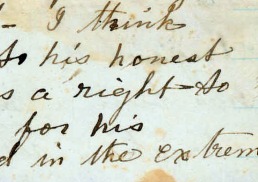 - I think
to his honest
s a right to
for his
d in the extrem